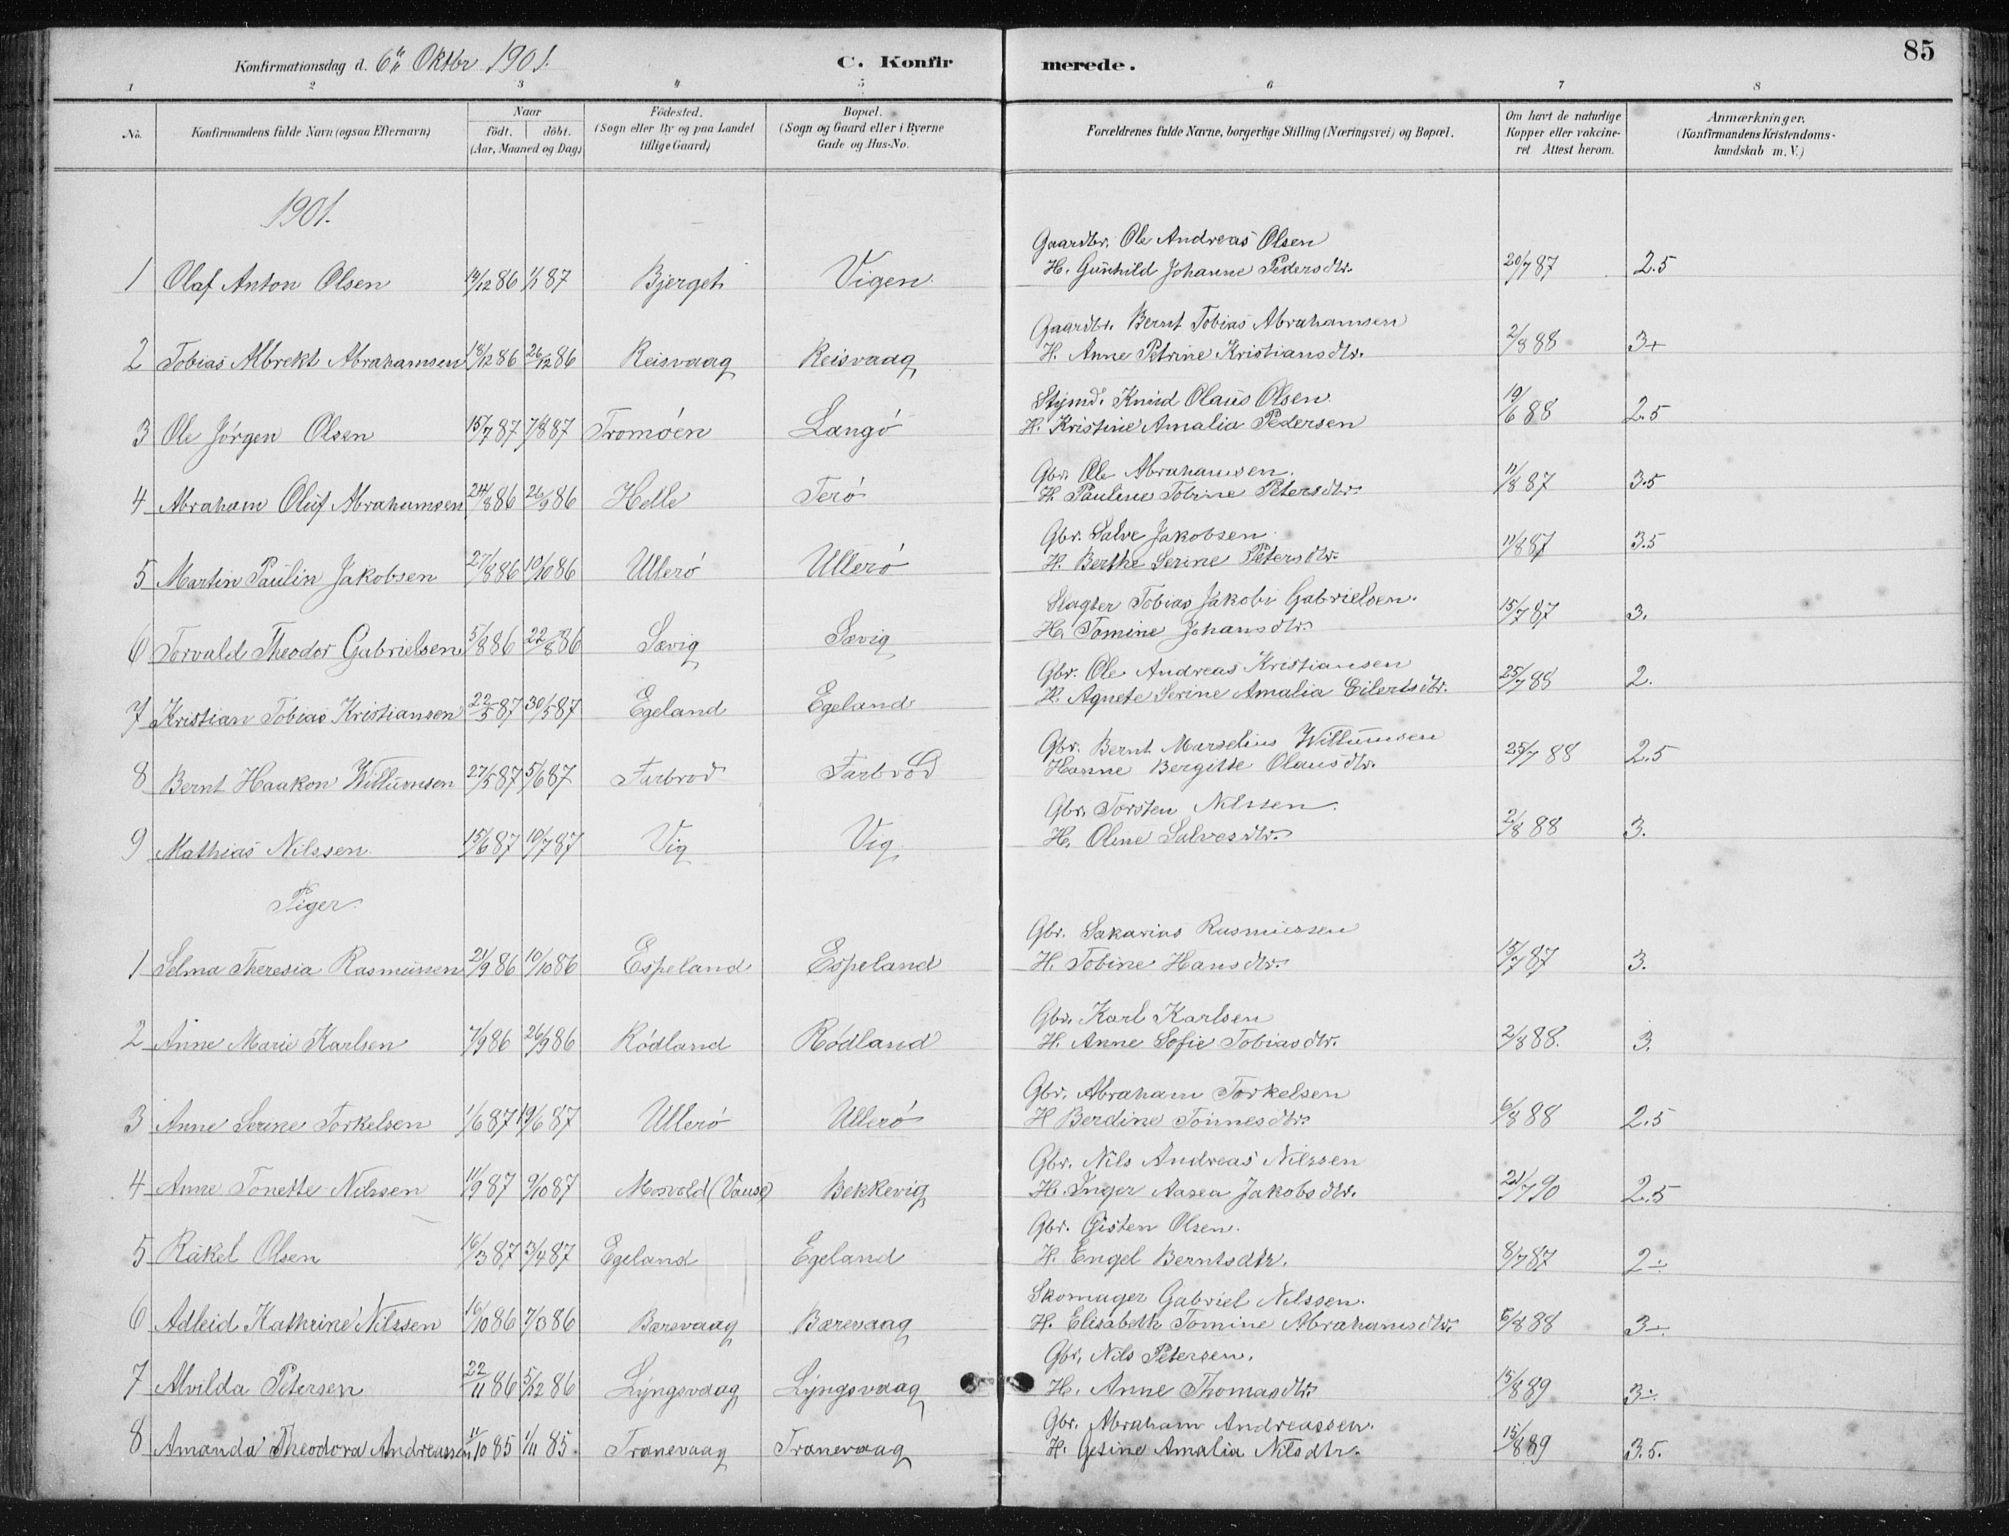 85
Konfirmationsdag d. 6te Oktbr 1901. C. Konfirmerede.
1 2 3 4 5 6 7 8
No. Konfirmandens fulde Navn (ogsaa Efternavn) Naar födt. döbt. (Aar, Maaned og Dag) Födested. (Sogn eller By og paa Landet tillige Gaard) Bopæl. (Sogn og Gaard eller i Byerne Gade og Hus-No. Forældrenes fulde Navne, borgerlige Stilling (Næringsvei) og Bopæl. Om havt de naturlige Kopper eller vakcineret Attest herom. Anmærkninger. (Konfirmandens Kristendomskundskab m. V.)
1901.
Gaardbr. Ole Andreas Olsen
1 Olaf Anton Olsen 14/12 86 1/1 87 Bjerget Vigen H. Gunhild Johanne Pedersdtr. 20/7 87 2.5
Gaardbr. Bernt Tobias Abrahamsen
2 Tobias Albrekt Abrahamsen 18/12 86 26/12 86 Reisvaag Reisvaag H. Anne Petrine Kristiansdtr. 2/8 88 3+
Styrmd. Knud Olaus Olsen
3 Ole Jörgen Olsen 15/7 87 7/8 87 Tromöen Langö H. Kristine Amalia Pedersen 10/6 88 2.5
Gbr. Ole Abrahamsen.
4 Abraham Oluf Abrahamsen 24/8 86 26/9 86 Helle Terö H. Pauline Tobine Petersdtr. 11/8 87 3.5
Gbr. Salve Jakobsen
5 Martin Paulin Jakobsen 27/8 86 10/10 86 Ullerö Ullerö H. Berthe Serine Petersdtr. 11/8 87 3.5
Slagter Tobias Jakobi Gabrielsen.
6 Torvald Theodor Gabrielsen 5/8 86 22/8 86 Sævig Sævig H. Tomine Johansdtr. 15/7 87 3.
Gbr. Ole Andreas Kristiansen
7 Kristian Tobias Kristiansen 22/5 87 30/5 87 Egeland Egeland H. Agnete Serine Amalia Eilertsdtr. 25/7 88 2.
Gbr. Bernt Marselius Willumsen
8 Bernt Haakon Willumsen 27/5 87 5/6 87 Farbrod Farbrod Hanne Bergitte Olausdtr. 25/7 88 2.5
Gbr. Torsten Nilssen.
9 Mathias Nilssen 15/6 87 10/7 87 Vig Vig H. Olene Salvesdtr. 2/8 88 3.
Piger
Gbr. Sakarias Rasmussen
1 Selma Theresia Rasmussen 21/9 86 10/10 86 Espeland Espeland H. Tobine Hansdtr. 15/7 87 3.
Gbr. Karl Karlsen
2 Anne Marie Karlsen 7/9 86 26/9 86 Rödland Rödland H. Anne Sofie Tobiasdtr. 2/8 88. 3.
Gbr. Abraham Torkelsen
3 Anne Serine Torkelsen 1/6 87 19/6 87 Ullerö Ullerö H Berdine Tönnesdtr. 6/8 88 2.5
Gbr. Nils Andreas Nilssen
4 Anne Tonette Nilssen 11/9 87 9/10 87 Mosvold (Vanse) Bekkevig H. Inger Aasea Jakobsdtr. 21/7 90 2.5
Gbr. Gisten Olsen.
5 Rakel Olsen 16/3 87 3/4 87 Egeland Egeland H. Engel Berntsdtr. 8/7 87 2÷
Skomager Gabriel Nilssen.
6 Adleid Kathrine Nilssen 16/10 86 7/3 86 Bærevaag Bærevaag H. Elisabeth Tomine Abrahamsdtr. 6/8 88 3÷
Gbr. Nils Petersen.
7 Alvilda Petersen 22/11 86 5/12 86 Lyngsvaag Lyngsvaag H. Anne Thomasdtr. 15/8 89 3÷
Gbr. Abraham Andreassen.
8 Amanda Theodora Andreassen 11/10 85 1/11 85. Tranevaag Tranevaag H. Gesine Amalia Nilsdtr. 15/8 89 3.5.